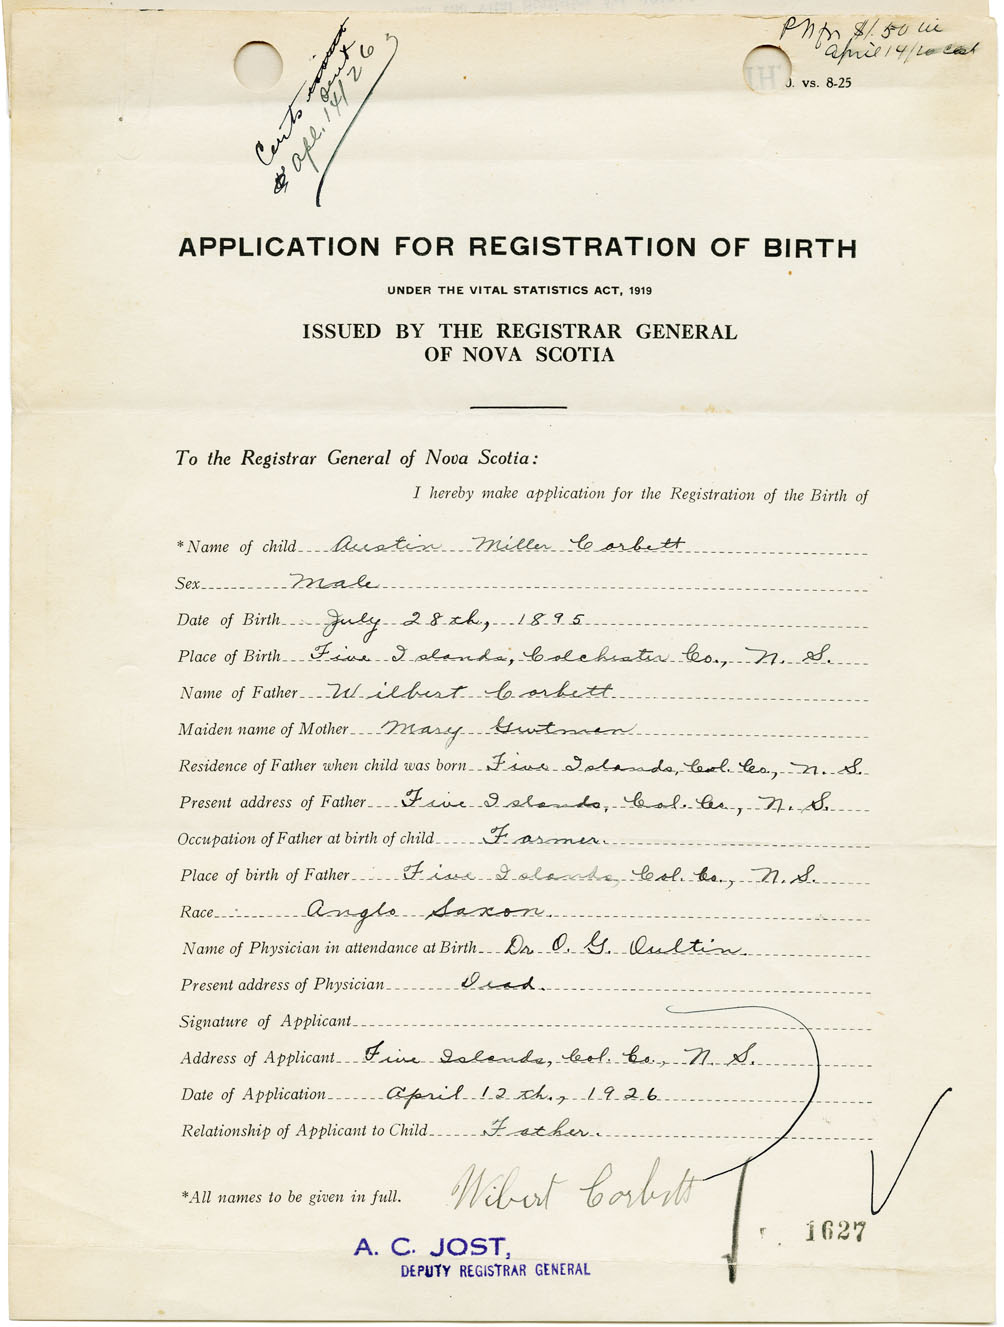 Certs sent
Apl. 14/26
$1.50
April 14/26
D. vs. 8-25
APPLICATION FOR REGISTRATION OF BIRTH
UNDER THE VITAL STATISTICS ACT, 1919
ISSUED BY THE REGISTRAR GENERAL
OF NOVA SCOTIA
To the Registrar General of Nova Scotia:
I hereby make application for the Registration of the Birth of
*Name of child Austin Miller Corbett
Sex Male
Date of Birth July 28th, 1895
Place of Birth Five Islands, Colchester Co., N. S.
Name of Father Wilbert Corbett
Maiden name of Mother Mary
Residence of Father when child was born Five Islands, Col. Co., N. S.
Present address of Father Five Islands, Col. Co., N. S.
Occupation of Father at birth of child Farmer.
Place of birth of Father Five Islands, Col. Co., N. S.
Race Anglo Saxon.
Name of Physician in attendance at Birth Dr. O. G. Oultin.
Present address of Physician Dead.
Signature of Applicant
Address of Applicant Five Islands, Col. Co., N. S.
Date of Application April 12th., 1926
Relationship of Applicant to Child Father.
*All names to be given in full. Wibert Corbett
1627
A. C. JOST,
DEPUTY REGISTRAR GENERAL